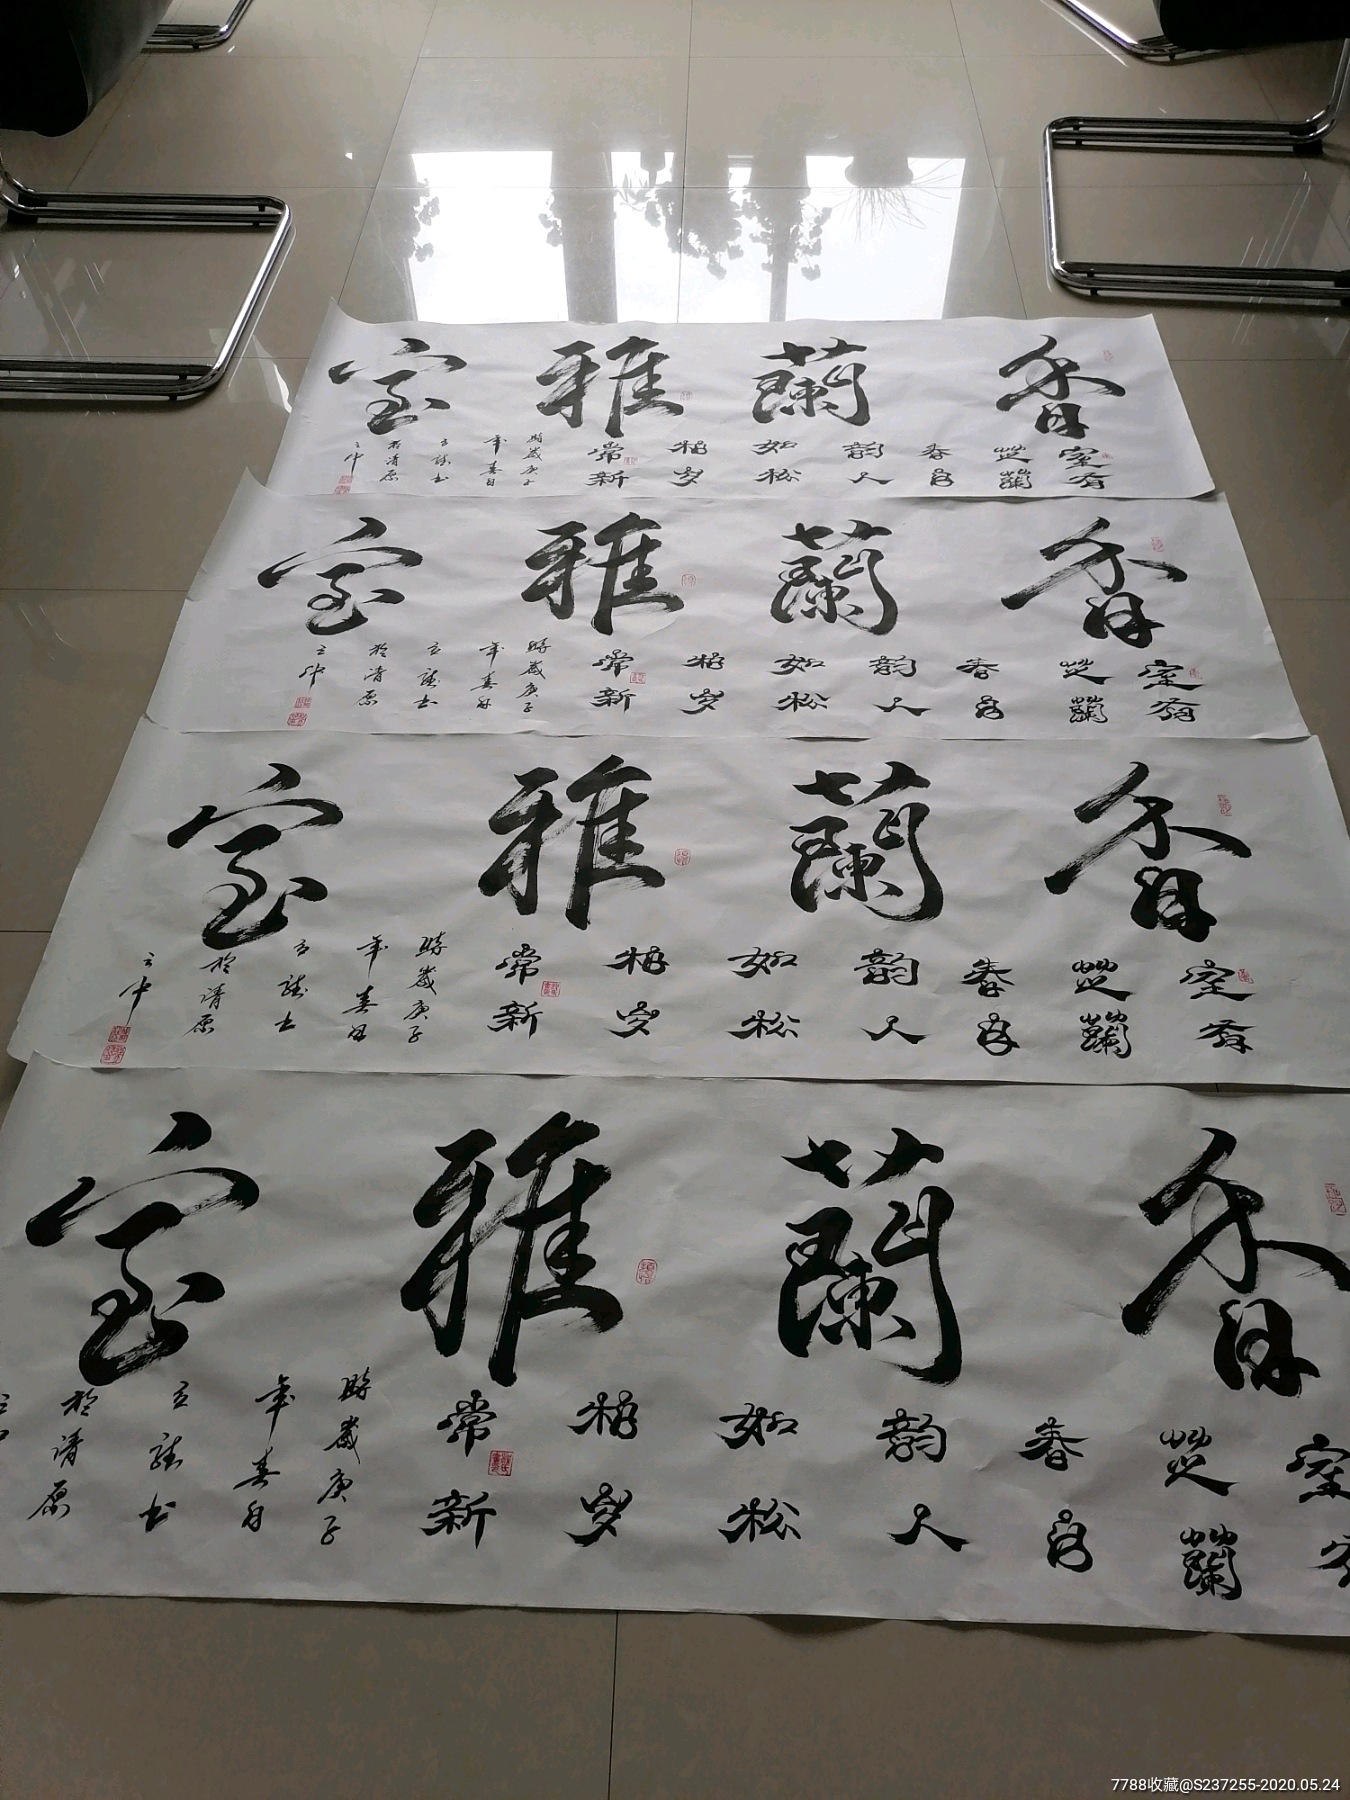 香蘭雅室
室有
芝蘭
春自
韵人
如松
柏岁
常新
時歲庚子
年春月
於清原
香蘭雅室
室有
芝蘭
春自
韵人
如松
柏岁
常新
時歲庚子
年春月
於清原
香蘭雅室
室有
芝蘭
春自
韵人
如松
柏岁
常新
時歲庚子
年春月
於清原
香蘭雅室
室有
芝蘭
春自
韵人
如松
柏岁
常新
時歲庚子
年春月
於清原
7788收藏@S237255-2020.05.24